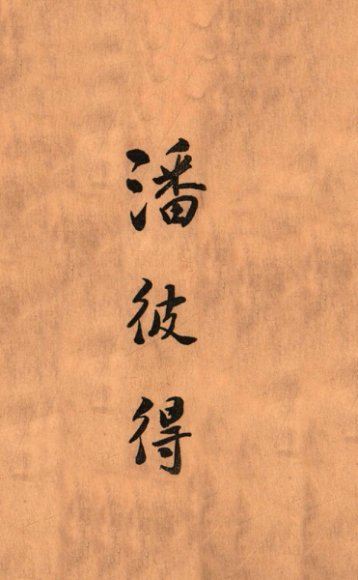 潘彼得